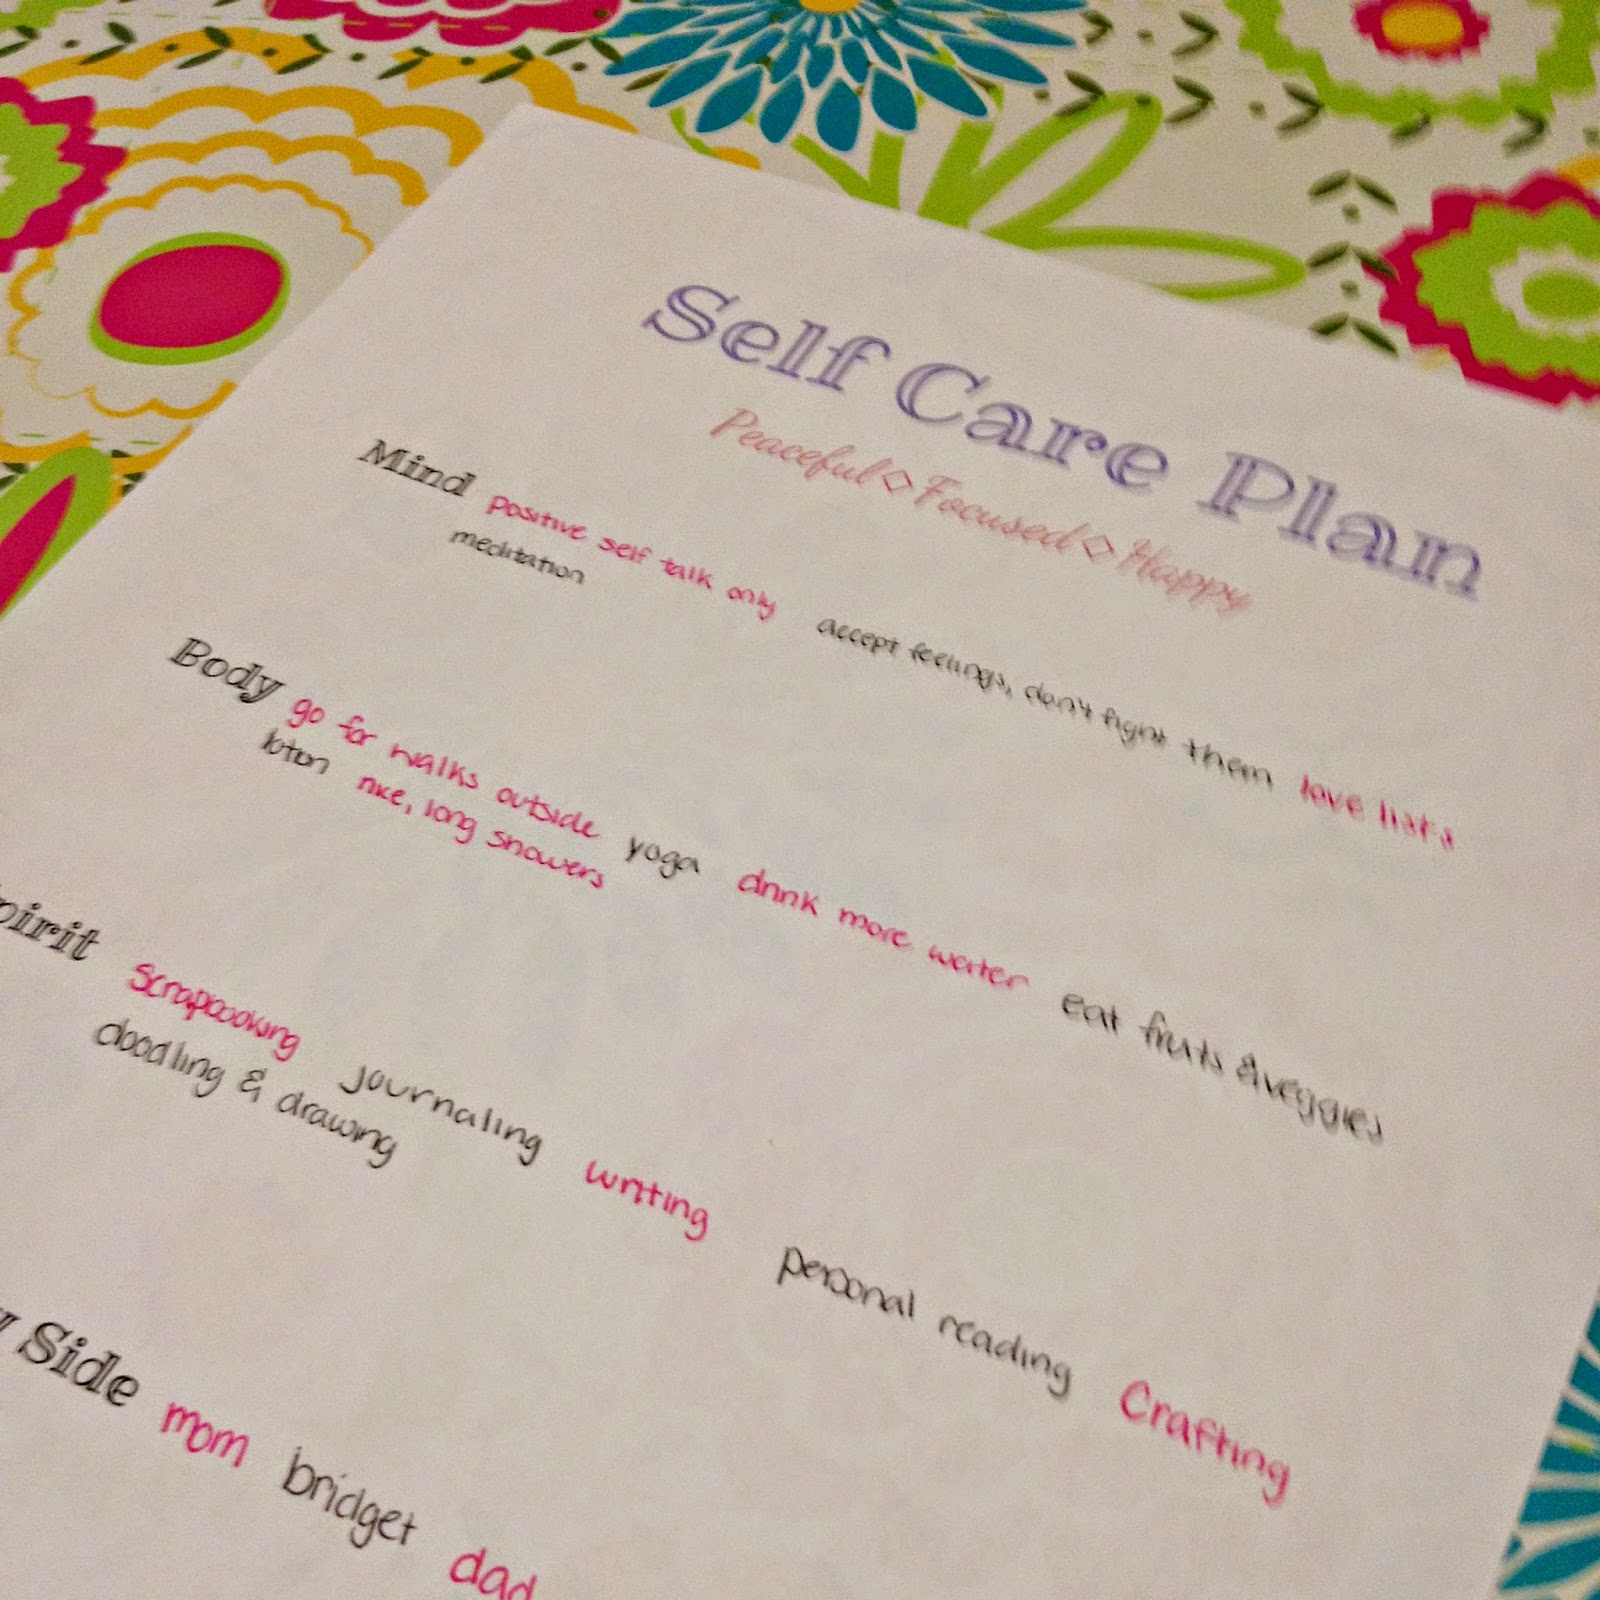 Self Care Plan
Peaceful ◇ Focused ◇ Happy
Mind positive self talk only accept feelings, don't fight them love lists
meditation
Body go for walks outside yoga drink more water eat fruits & veggies
lotion nice, long showers
pirit Scrapbooking journaling writing personal reading Crafting
doodling & drawing
y Side mom bridget dad